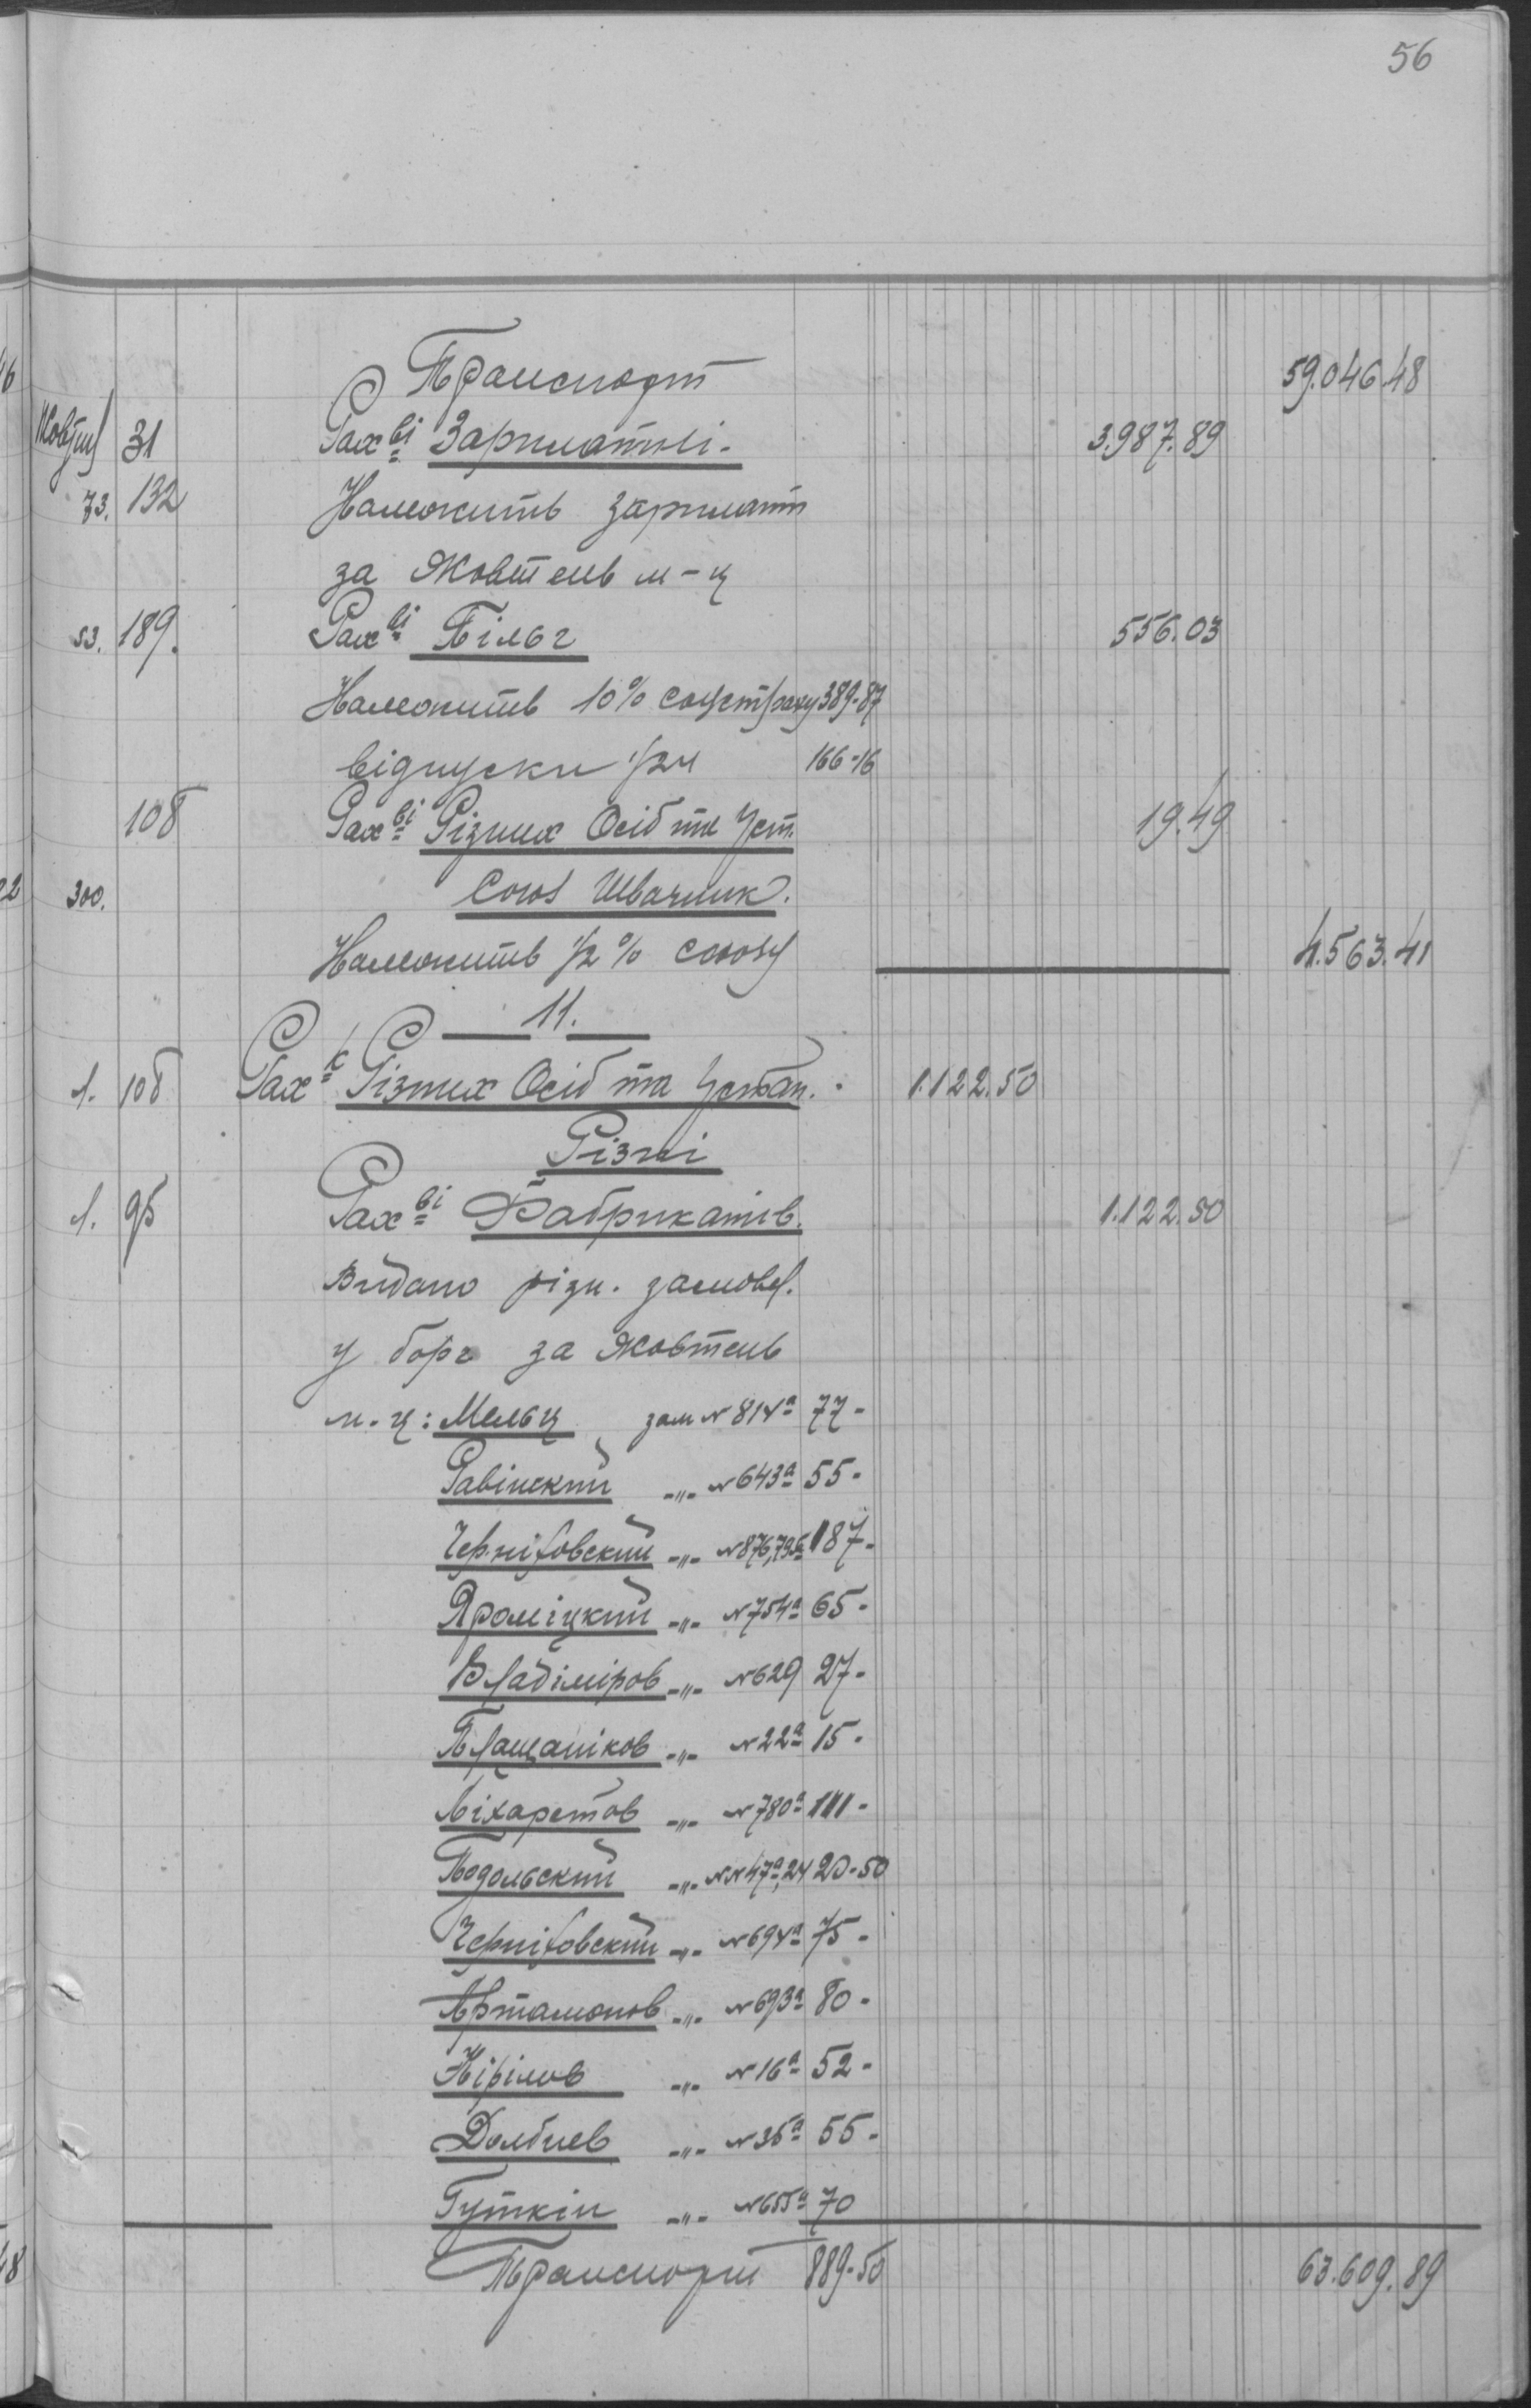 56
Транспорт 59.046.48
Жовтня 31 Рах-ві Зарплатні. 3.987.89
73. 132 Належить зарплатт
за Жовтень м-ц
53. 189. Рах-ві Пільг 556.03
Належить 10% соцстраху 389-87
відпуски 1/24 166-16
108 Рах-ві Різних Осіб та Уст. 19.49
300. Союз Швачник.
Належить 1/2% союзу 4.563.41
11.
1. 108 Рах-к Різних Осіб та Устан. 1.122.50
Різні
1. 95 Рах-ві Фабрикатів. 1.122.50
Видано різн. замовл.
у борг за Жовтень
м-ц: Мельц зам № 814а 77-
Равінский -"- № 643а 55-
Черніховский -"- № 876,795 187-
Яроміцкий -"- № 754а 65-
Владіміров -"- № 629 27-
Плащаніков -"- № 22а 15-
Ліхаретов -"- № 780а 111-
Подольский -"- №№ 47а,24 20-50
Черніховский -"- № 694а 75-
Артамонов -"- № 693а 80-
Кірілов -"- № 16а 52-
Долбнев -"- № 35а 55-
Гуткін -"- № 655а 70
Транспорт 889-50 63.609.89